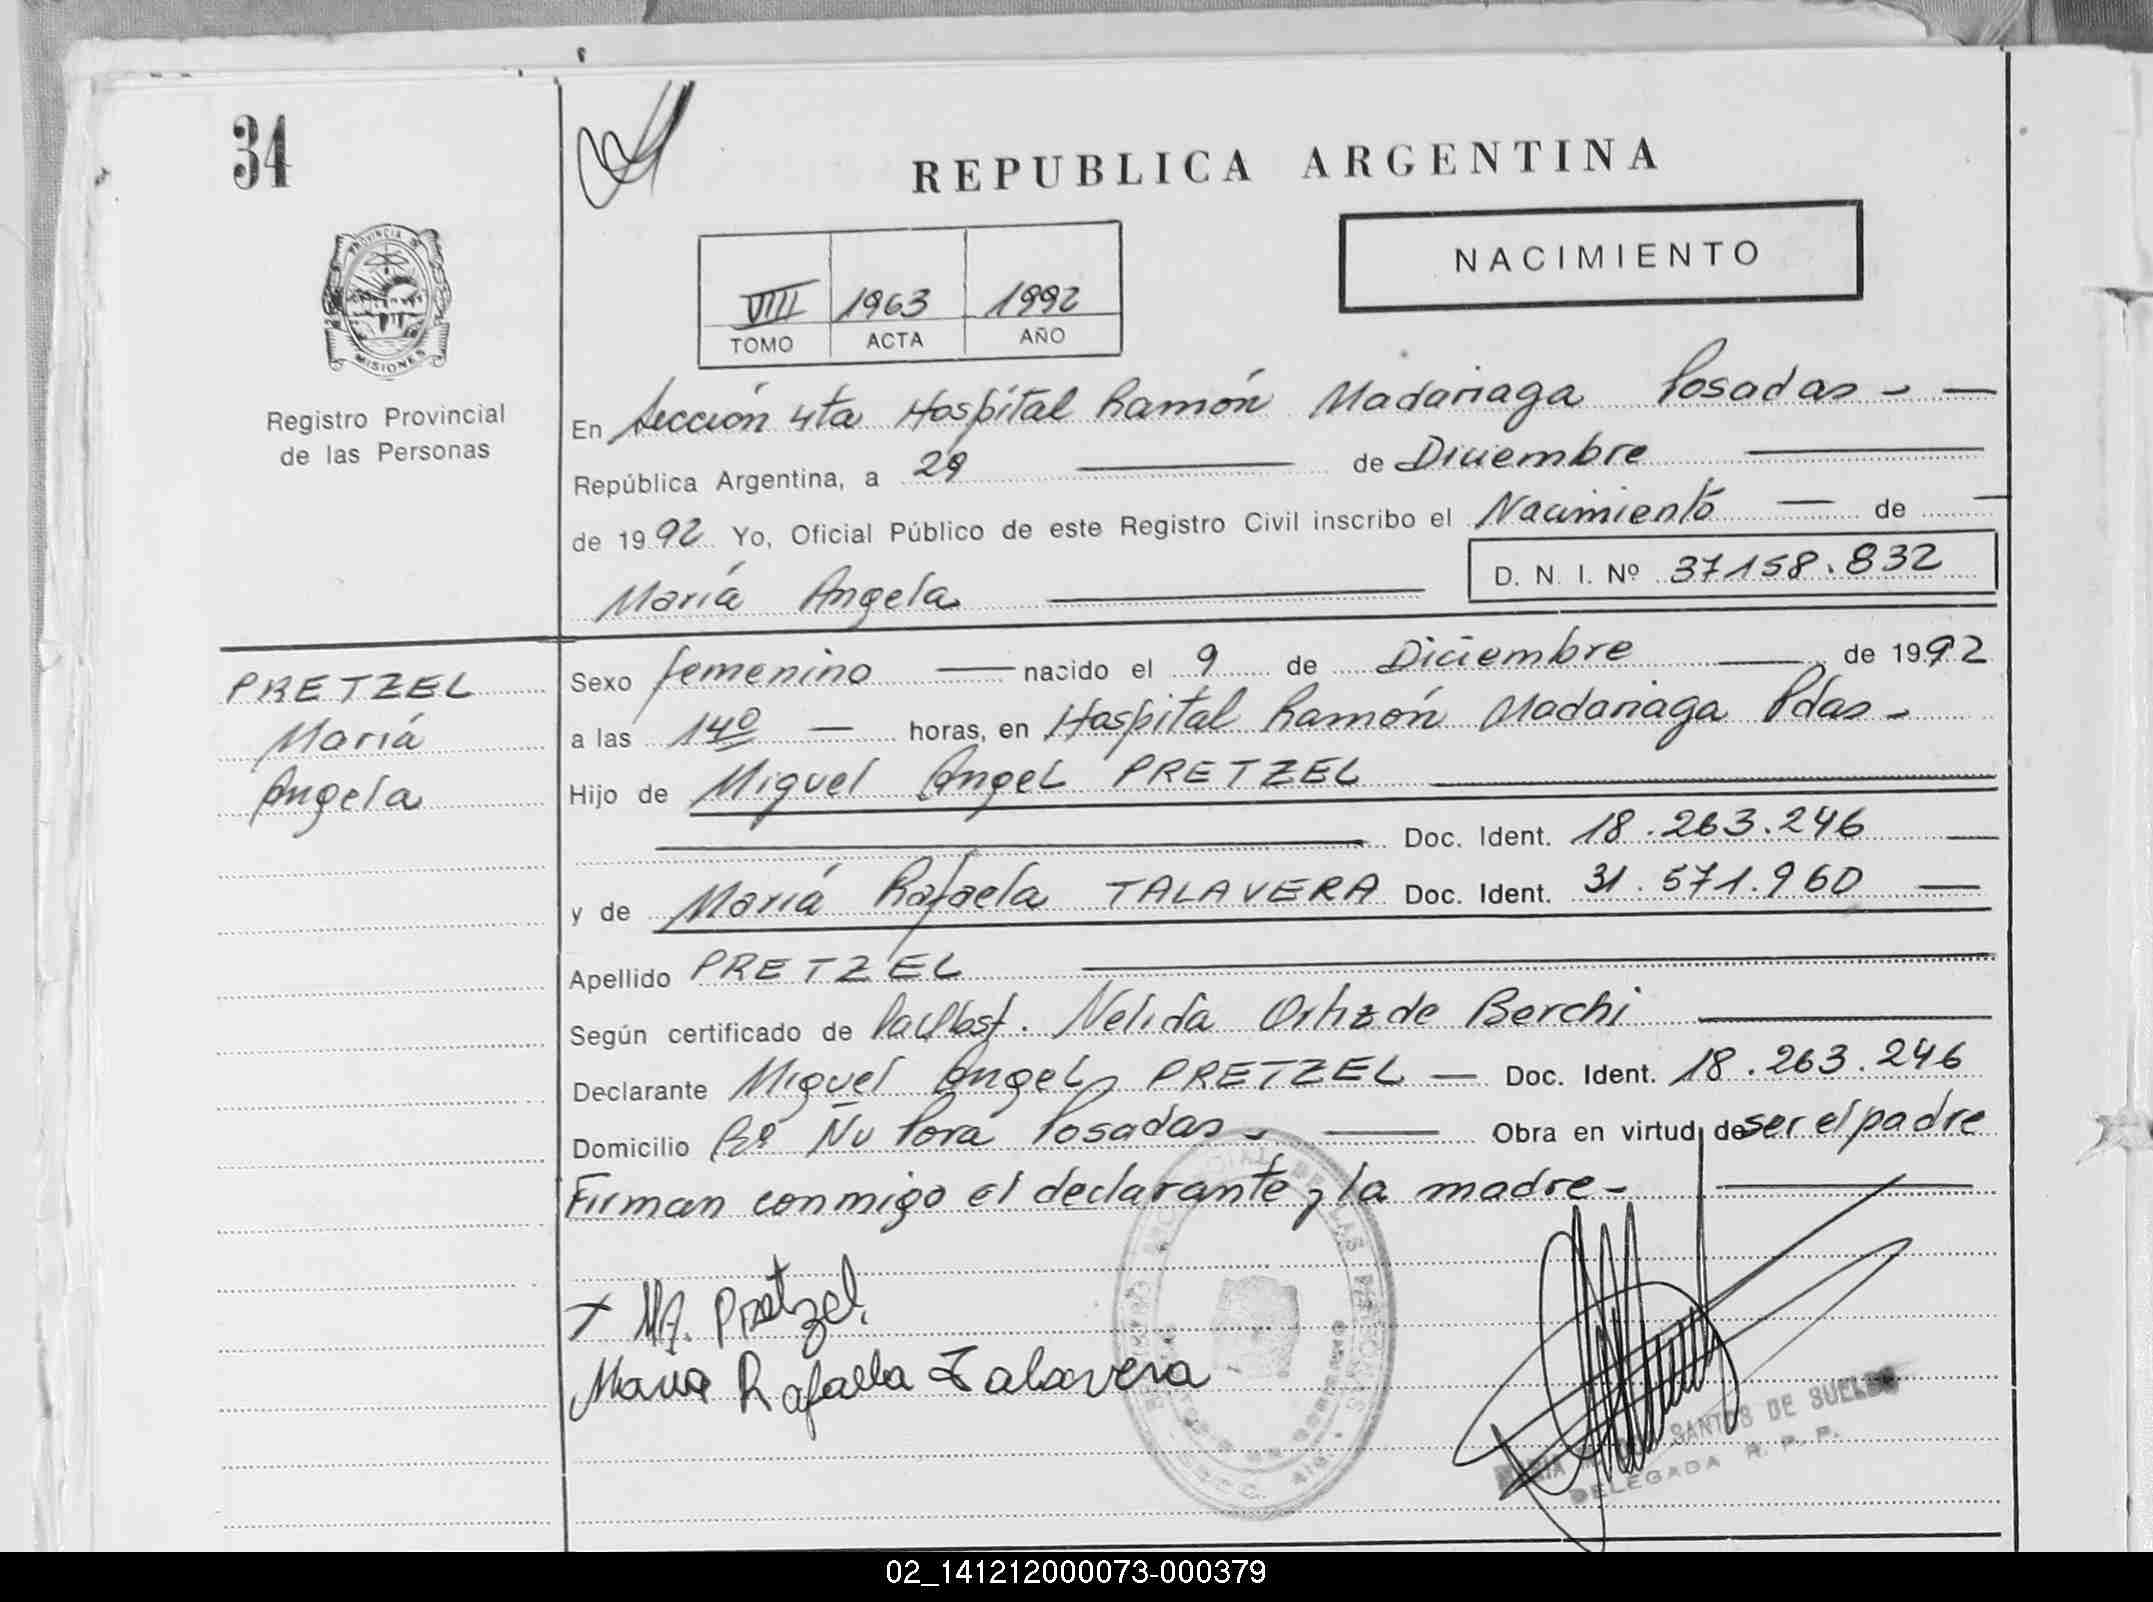 34
REPUBLICA ARGENTINA
PROVINCIA DE
MISIONES
NACIMIENTO
VIII 1963 1992
TOMO ACTA AÑO
Registro Provincial
de las Personas
En Sección 4ta Hospital Ramón Madariaga Posadas - —
República Argentina, a 29 — de Diciembre —
de 1992 Yo, Oficial Público de este Registro Civil inscribo el Nacimiento — de —
María Angela — D. N. I. Nº 37158.832
PRETZEL
María
Angela
Sexo femenino — nacido el 9 de Diciembre — de 1992
a las 14º — horas, en Hospital Ramón Madariaga Pdas -
Hijo de Miguel Angel PRETZEL —
— Doc. Ident. 18.263.246 —
y de María Rafaela TALAVERA Doc. Ident. 31.571.960 —
Apellido PRETZEL —
Según certificado de Nelida Ortiz de Berchi —
Declarante Miguel Angel PRETZEL — Doc. Ident. 18.263.246
Domicilio Bº Ñu Porá Posadas - — Obra en virtud de ser el padre
Firman conmigo el declarante y la madre - —
+ MA. Pretzel
Maria Rafaela Talavera
SANTOS DE SUELDO
DELEGADA R. P. P.
02_141212000073-000379